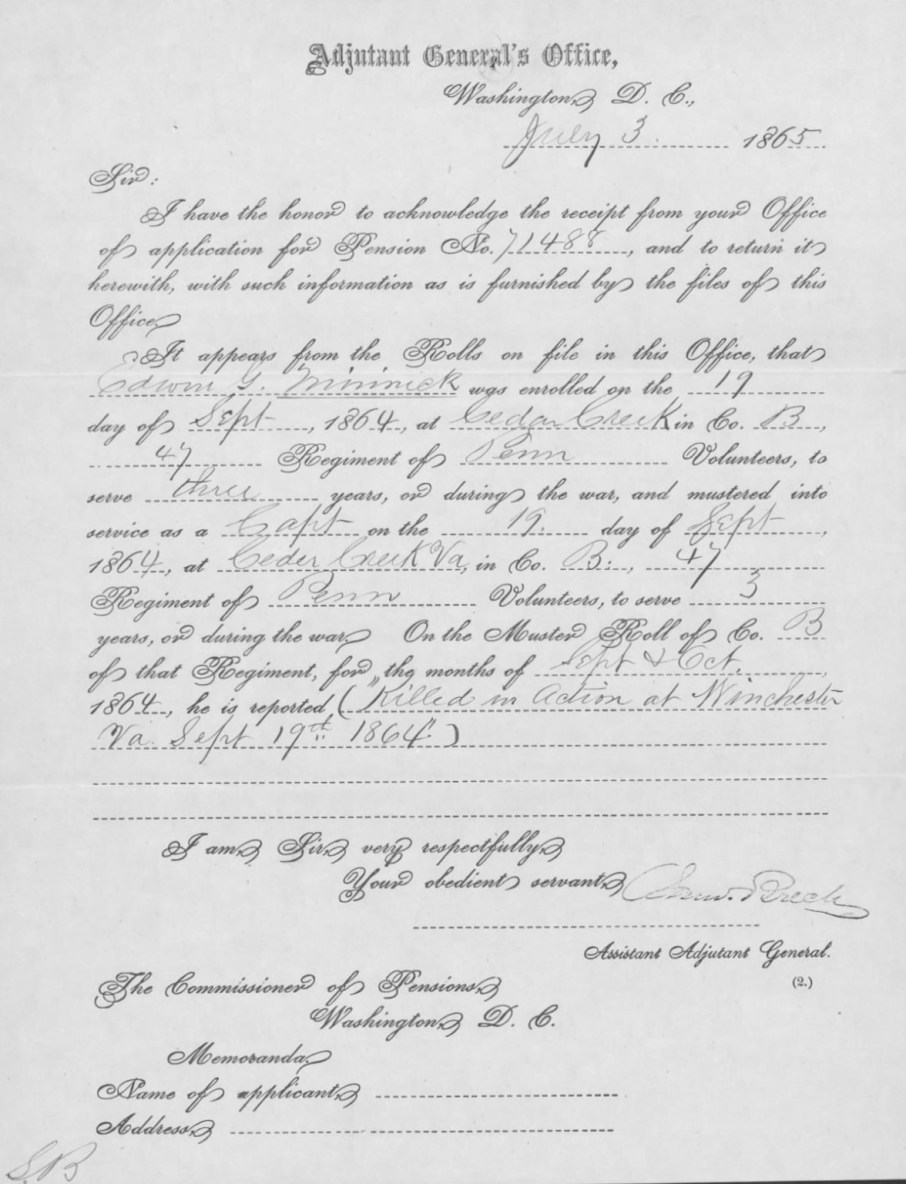 Adjutant General's Office,
Washington, D. C.,
July 3. 1865
Sir:
I have the honor to acknowledge the receipt from your Office
of application for Pension No. 71488, and to return it
herewith, with such information as is furnished by the files of this
Office.
It appears from the Rolls on file in this Office, that
Edwin G. Minnick was enrolled on the 19
day of Sept, 1864, at Cedar Creek in Co. B,
47 Regiment of Penn Volunteers, to
serve three years, or during the war, and mustered into
service as a Capt on the 19. day of Sept,
1864, at Ceder Creek Va, in Co. B., 47
Regiment of Penn Volunteers, to serve 3
years, or during the war. On the Muster Roll of Co. B
of that Regiment, for the months of Sept & Oct.,
1864, he is reported ("Killed in Action at Winchester
Va. Sept 19th 1864")
I am, Sir, very respectfully,
Your obedient servant,
Assistant Adjutant General.
(2.)
The Commissioner of Pensions,
Washington, D. C.
Memoranda,
Name of applicant,
Address,
S.B